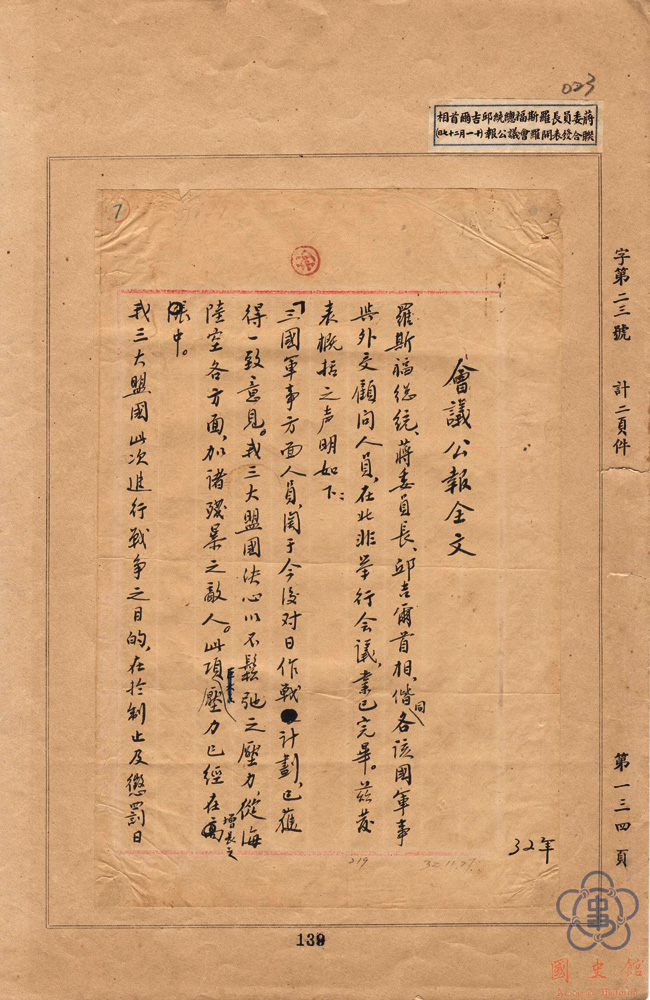 023
蔣委員長羅斯福總統邱吉爾首相
聯合發表開羅會議公報(十一月二十七日)
字第二三號 計二頁件
第一三四頁
7
會議公報全文
羅斯福總統、蔣委員長、邱吉爾首相、偕同各該國軍事
與外交顧問人員,在北非舉行会議,業已完畢。茲發
表概括之声明如下:
「三國軍事方面人員,関于今後对日作戰計劃,已獲
得一致意見。我三大盟國決心以不鬆弛之壓力,從海
陸空各方面,加諸殘暴之敵人。此項壓力已經在增長之
中。
我三大盟國此次進行戰爭之目的,在於制止及懲罰日
32年
219
32.11.27.
139
國史館
Academia Historica